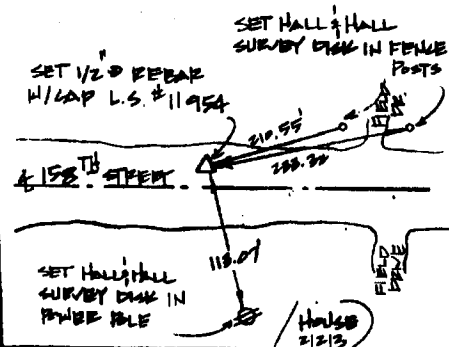 SET HALL & HALL
SURVEY DISK IN FENCE
POSTS
SET 1/2" Ø REBAR
W/CAP L.S. #11954
FIELD
DR.
210.55'
233.32
℄ 158TH STREET
118.01
SET HALL & HALL
SURVEY DISK IN
POWER POLE
FIELD
DRIVE
HOUSE
21213